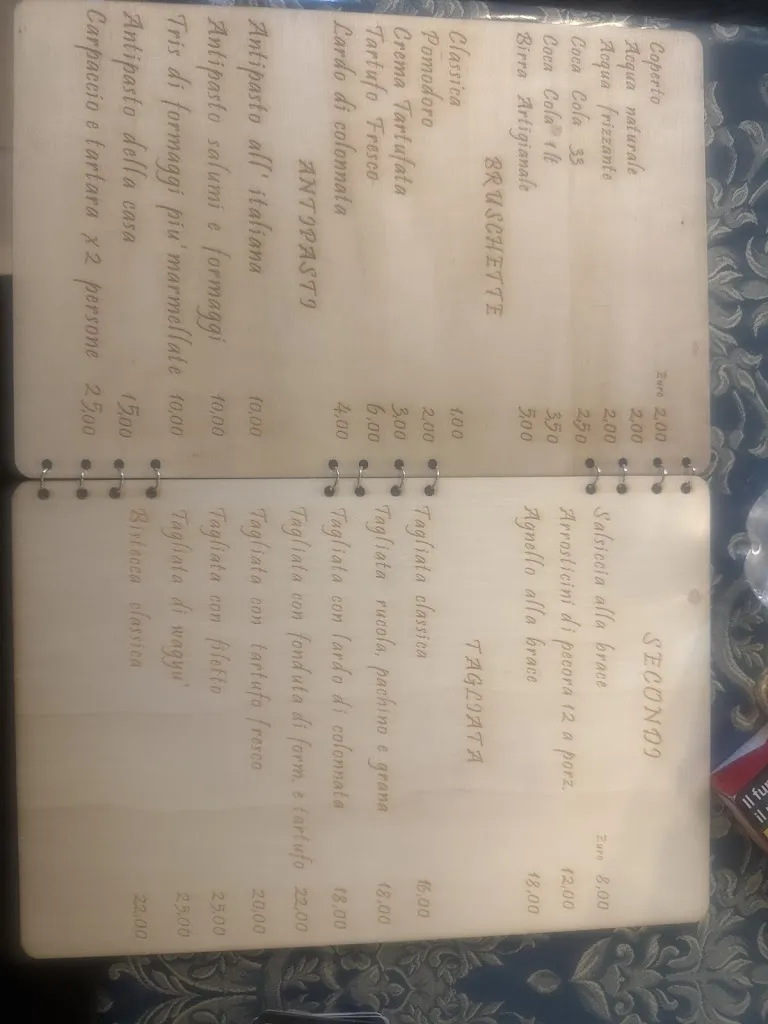 Euro
Coperto 2,00
Acqua naturale 2,00
Acqua frizzante 2,00
Coca Cola 33 2,50
Coca Cola 1lt 3,50
Birra Artigianale 5,00
BRUSCHETTE
Classica 1,00
Pomodoro 2,00
Crema Tartufata 3,00
Tartufo Fresco 6,00
Lardo di colonnata 4,00
ANTIPASTI
Antipasto all' italiana 10,00
Antipasto salumi e formaggi 10,00
Tris di formaggi piu' marmellate 10,00
Antipasto della casa 15,00
Carpaccio e tartara x 2 persone 25,00
SECONDI
Euro
Salsiccia alla brace 8,00
Arrosticini di pecora 12 a porz. 12,00
Agnello alla brace 18,00
TAGLIATA
Tagliata classica 16,00
Tagliata rucola, pachino e grana 18,00
Tagliata con lardo di colonnata 18,00
Tagliata con fonduta di form. e tartufo 22,00
Tagliata con tartufo fresco 20,00
Tagliata con filetto 25,00
Tagliata di wagyu'
Bistecca classica 22,00
Il fu
il